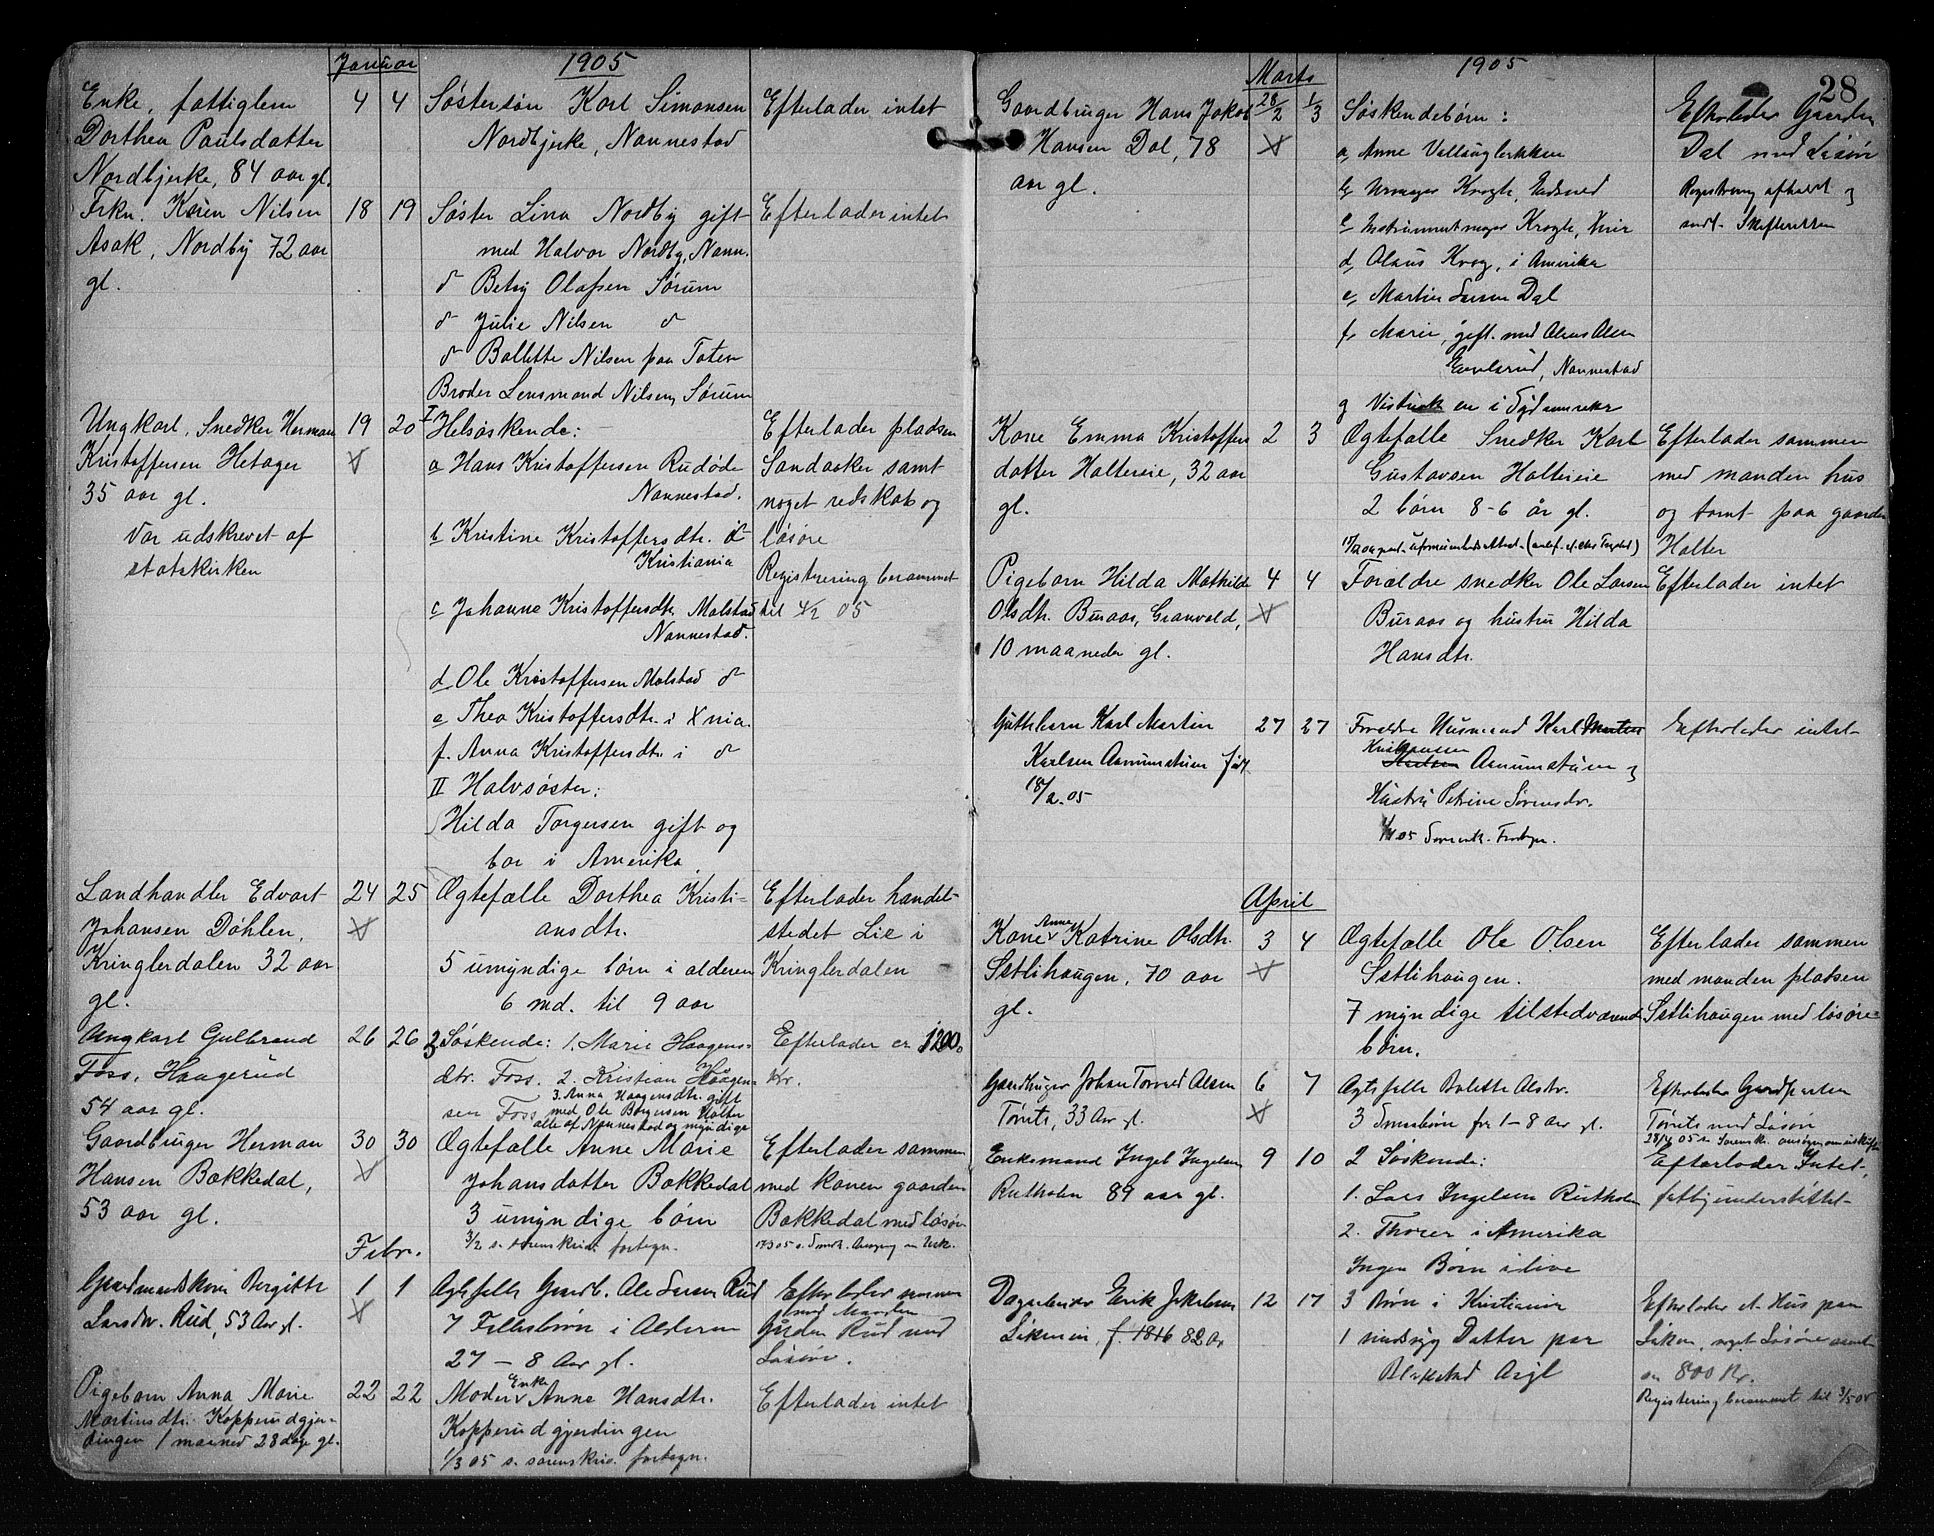 Januar
1905
Enke, fattiglem
Dorthea Paulsdatter
Nordbjerke, 84 aar gl.
4 4
Søstersøn Karl Simonsen
Nordbjerke, Nannestad
Efterlader intet
Frkn. Karen Nilsen
Asak, Nordby 72 aar
gl.
18 19
Søster Lina Nordby gift
med Halvor Nordby, Nann.
d Betsy Olafsen Sørum
d Julie Nilsen d
d Bollette Nilsen paa Toten
Broder Lensmand Nilsen, Sørum
Efterlader intet
Ungkarl, Snedker Herman
Kristoffersen Hetager
35 aar gl.
Var udskrevet af
statskirken
19 20
I Helsøskende:
a Hans Kristoffersen Rudøde
Nannestad.
b Kristine Kristoffersdtr.
Kristiania
c Johanne Kristoffersdtr. Malstad
Nannestad.
d Ole Kristoffersen Malstad d
e Thea Kristoffersdtr. i Xnia.
f. Anna Kristoffersdtr. i d
II Halvsøster:
Hilda Torgersen gift og
bor i Amerika
Efterlader pladsen
Sandaaker samt
noget redskab og
løsøre
Registrering berammet
til 4/2 05
Landhandler Edvart
Johansen Døhlen,
Kringlerdalen 32 aar
gl.
24 25
Ægtefælle Dorthea Kristi-
ansdtr.
5 umyndige børn i alderen
6 md. til 9 aar
Efterlader handel-
stedet Lie i
Kringlerdalen
Ungkarl Gulbrand
Foss, Haagerud
54 aar gl.
26 26
3 Søskende: 1. Marie Haagens-
dtr. Foss. 2. Kristian Haagen-
sen Foss
3. Anna Haagensdtr. gift
med Ole Børgersen Holter
alle af Nannestad og myndige
Efterlader ca 1200
Kr.
Gaardbruger Herman
Hansen Bakkedal,
53 aar gl.
30 30
Ægtefælle Anne Marie
Johansdatter Bakkedal
3 umyndige børn
3/2 s. sorenskriv. fortegn.
Efterlader sammen
med konen gaarden
Bakkedal med løsøre
Febr.
Gaardmandskone Bergitte
Larsdtr. Rud, 53 Aar gl.
1 1
Ægtefelle Gaardb. Ole Larsen Rud
7 Fellesbørn i Alderen
27 – 8 Aar gl.
Efterlader sammen
med Manden
Gaarden Rud med
Løsøre.
Pigebarn Anna Marie
Martinsdtr. Kopperudgjer-
dingen 1 maaned 28 dage gl.
22 22
Moder Enke Anne Hansdtr.
Kopperudgjerdingen
1/3 05 s. sorenskriv. fortegn.
Efterlader intet
Marts
1905
28
Gaardbruger Hans Jakob
Hansen Dal, 78
aar gl.
28/2 1/3
Søskendebørn:
a, Anne
b, Urmager Krogh, Eidsvold
c, Instrumentmager Krogh,
d, Olaus Krog, i Amerika
e, Martin Larsen Dal
f, Marie, gift med Olaus Olsen
Nannestad
g Vistnok en i Sydamerika
Efterlader Gaarden
Dal med Løsøre
Registrering afholdt
sendt Skifteretten
Kone Emma Kristoffers
datter Holtereie, 32 aar
gl.
2 3
Ægtefælle Snedker Karl
Gustavsen Holtereie
2 børn 8-6 år gl.
Efterlader sammen
med manden hus
og tomt paa gaarden
Holter
Pigebarn Hilda Mathilde
Olsdtr. Buraas, Granvold,
10 maaneder gl.
4 4
Forældre snedker Ole Larsen
Buraas og hustru Hilda
Hansdtr.
Efterlader intet
Guttebarn Karl Martin
Karlsen Aamumstuen født
18/2.05
27 27
Foreldre Husmand Karl
Kristiansen Aamumstuen og
Hustru Petrine Sørensdtr.
Efterlader intet
April
Kone Anne Katrine Olsdtr.
Sætlihaugen, 70 aar
gl.
3 4
Ægtefælle Ole Olsen
Sætlihaugen.
7 myndige tilstedværende
børn.
Efterlader sammen
med manden pladsen
Sætlihaugen med løsøre
Gaardbruger Johan Torvald Olsen
Tømte, 33 Aar gl.
6 7
Ægtefelle Bolette Olsdtr.
3 Smaabørn fra 1–8 Aar gl.
Efterlader Gaardparten
Tømte med Løsøre
Enkemand Ingel Ingelsen
Rutholen 89 aar gl.
9 10
2 Søskende:
1. Lars Ingelsen Rutholen
2. Thorer i Amerika
Ingen Børn i live
Efterlader Intet,
fattigunderstøttet
Dagarbeider Erik Jakobsen
f. 1816 82 Aar
12 17
3 Børn i Kristiania
1 Datter paa
Efterlader et Hus paa
noget Løsøre
800 Kr.
Registrering berammet til 3/5 05